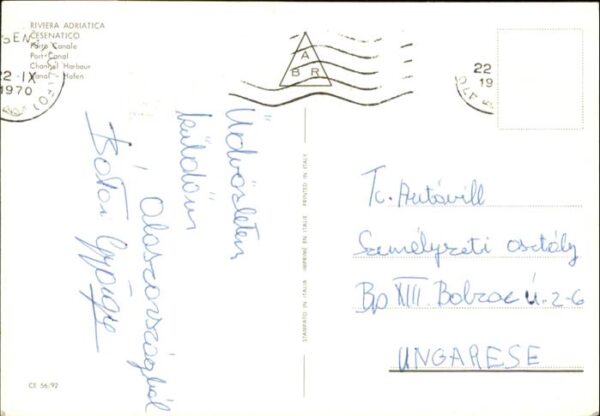 RIVIERA ADRIATICA
CESENATICO
Porto Canale
Port-Canal
Channel Harbour
Kanal - Hafen
22 -IX
1970
A
B R
22
19
Üdvözletem
küldöm
Olaszországból
György
STAMPATO IN ITALIA IMPRIMÉ EN ITALIE PRINTED IN ITALY
Tc. Autóvill
Személyzeti osztály
Bp XIII. Bolzac u. 2-6
UNGARESE
CE 56/92